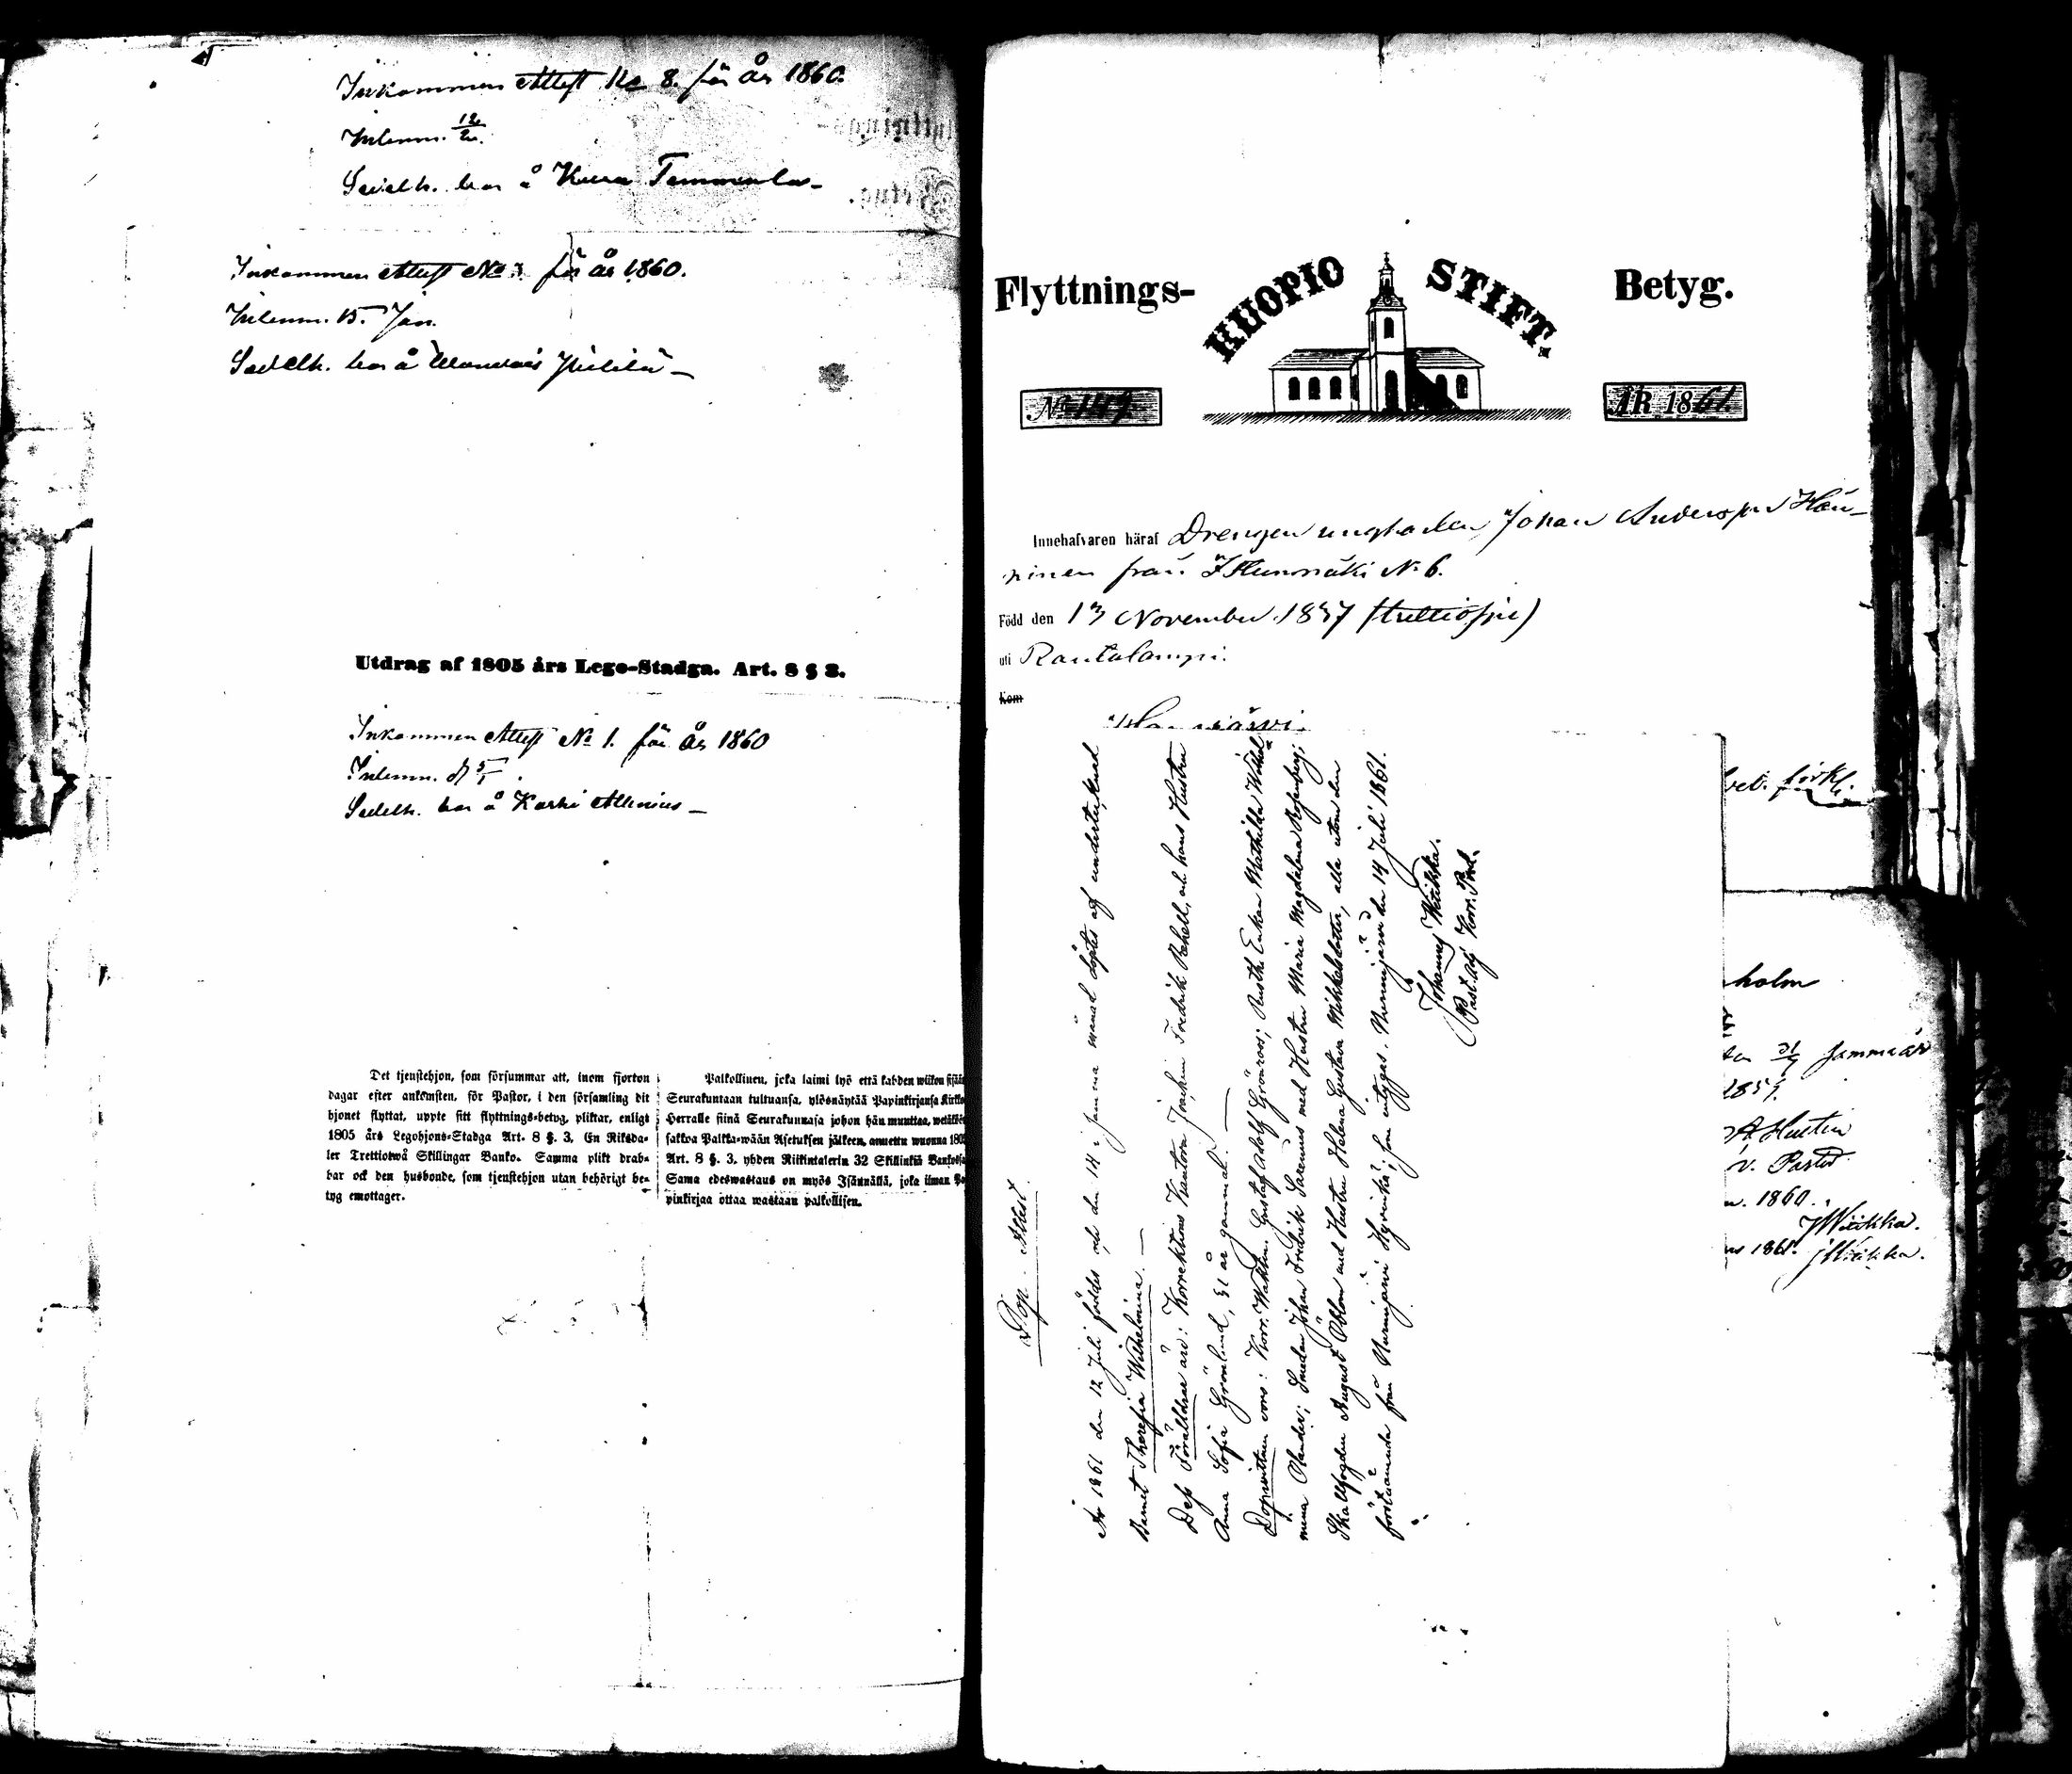 Inkommen Attest No 8. för År 1860.
Inlemn. 12/2.
Sedelh. bor å Kuera Tammenla-
Inkommen Attest No för år 1860.
Inlemn. 15. Jan.
Sedelh. bor å
Utdrag af 1805 års Lego-Stadga. Art. 8 § 3.
Inkommen Attest No 1. för År 1860
Inlemn. d 5/1.
Sedelh. bor å Karhi Allenius -
Det tjenstehjon, som försummar att, inom fjorton
dagar efter ankomsten, för Pastor, i den församling dit
hjonet flyttat, uppte sitt flyttnings-betyg, pliktar, enligt
1805 års Legohjons-Stadga Art. 8 §. 3, En Riksda-
ler Trettiotwå Skillingar Banko. Samma plikt drab-
bar ock den husbonde, som tjenstehjon utan behörigt be-
tyg emottager.
Palkollinen, joka laimi lyö että kahden wiikon sisään
Seurakuntaan tultuansa, ylösnäytää Papinkirjansa Kirkko
Herralle siinä Seurakunnasa johon hän muuttaa, wetäköön
sakkoa Palkka-wään Asetuksen jälkeen, annettu wuonna 1805
Art. 8 §. 3, yhden Riikintalerin 32 Skillinkiä Bankosa
Sama edeswastaus on myös Isännällä, joka ilman Pa-
pinkirjaa ottaa wastaan palkollisen.
Flyttnings- KUOPIO STIFT. Betyg.
No 149. ÅR 1861.
Innehafvaren häraf Drengen ungkarlen Johan Andersson Hän-
ninen från No 6.
Född den 13 November 1837 (trettiosju)
uti Rautalampi.
Kom
Dop-Attest.
År 1861 den 12 Juli föddes och den 14 i samma månad döptes af undertecknad
Barnet Theresia Wilhelmina. —
Dess Föräldrar äro: Korrektions Joachim Fredrik Rehell, och hans Hustru
Anna Sofia Grönlund, 31 år gammal. —
Dopvittnen voro: Korr. Waktm. Gustaf Adolf Grönroos; Enkan Mathilda Wilhel-
mina Olander; Smeden Johan Fredrik med Hustru Maria Magdalena Rosenberg;
Skallfogden August Öblom med Hustru Helena Gustava Mikkelsdotter, alla utom den
förstnämnda från Nurmijärvi Hyvinkä; som intygas. Nurmijärvi den 14 Juli 1861.
Johannes Wiikka.
Past. Adj. Korr. Pred.
holm
Jamma år
1859.
v. Pastor
1860.
JWiikka.
1861. JWiikka.